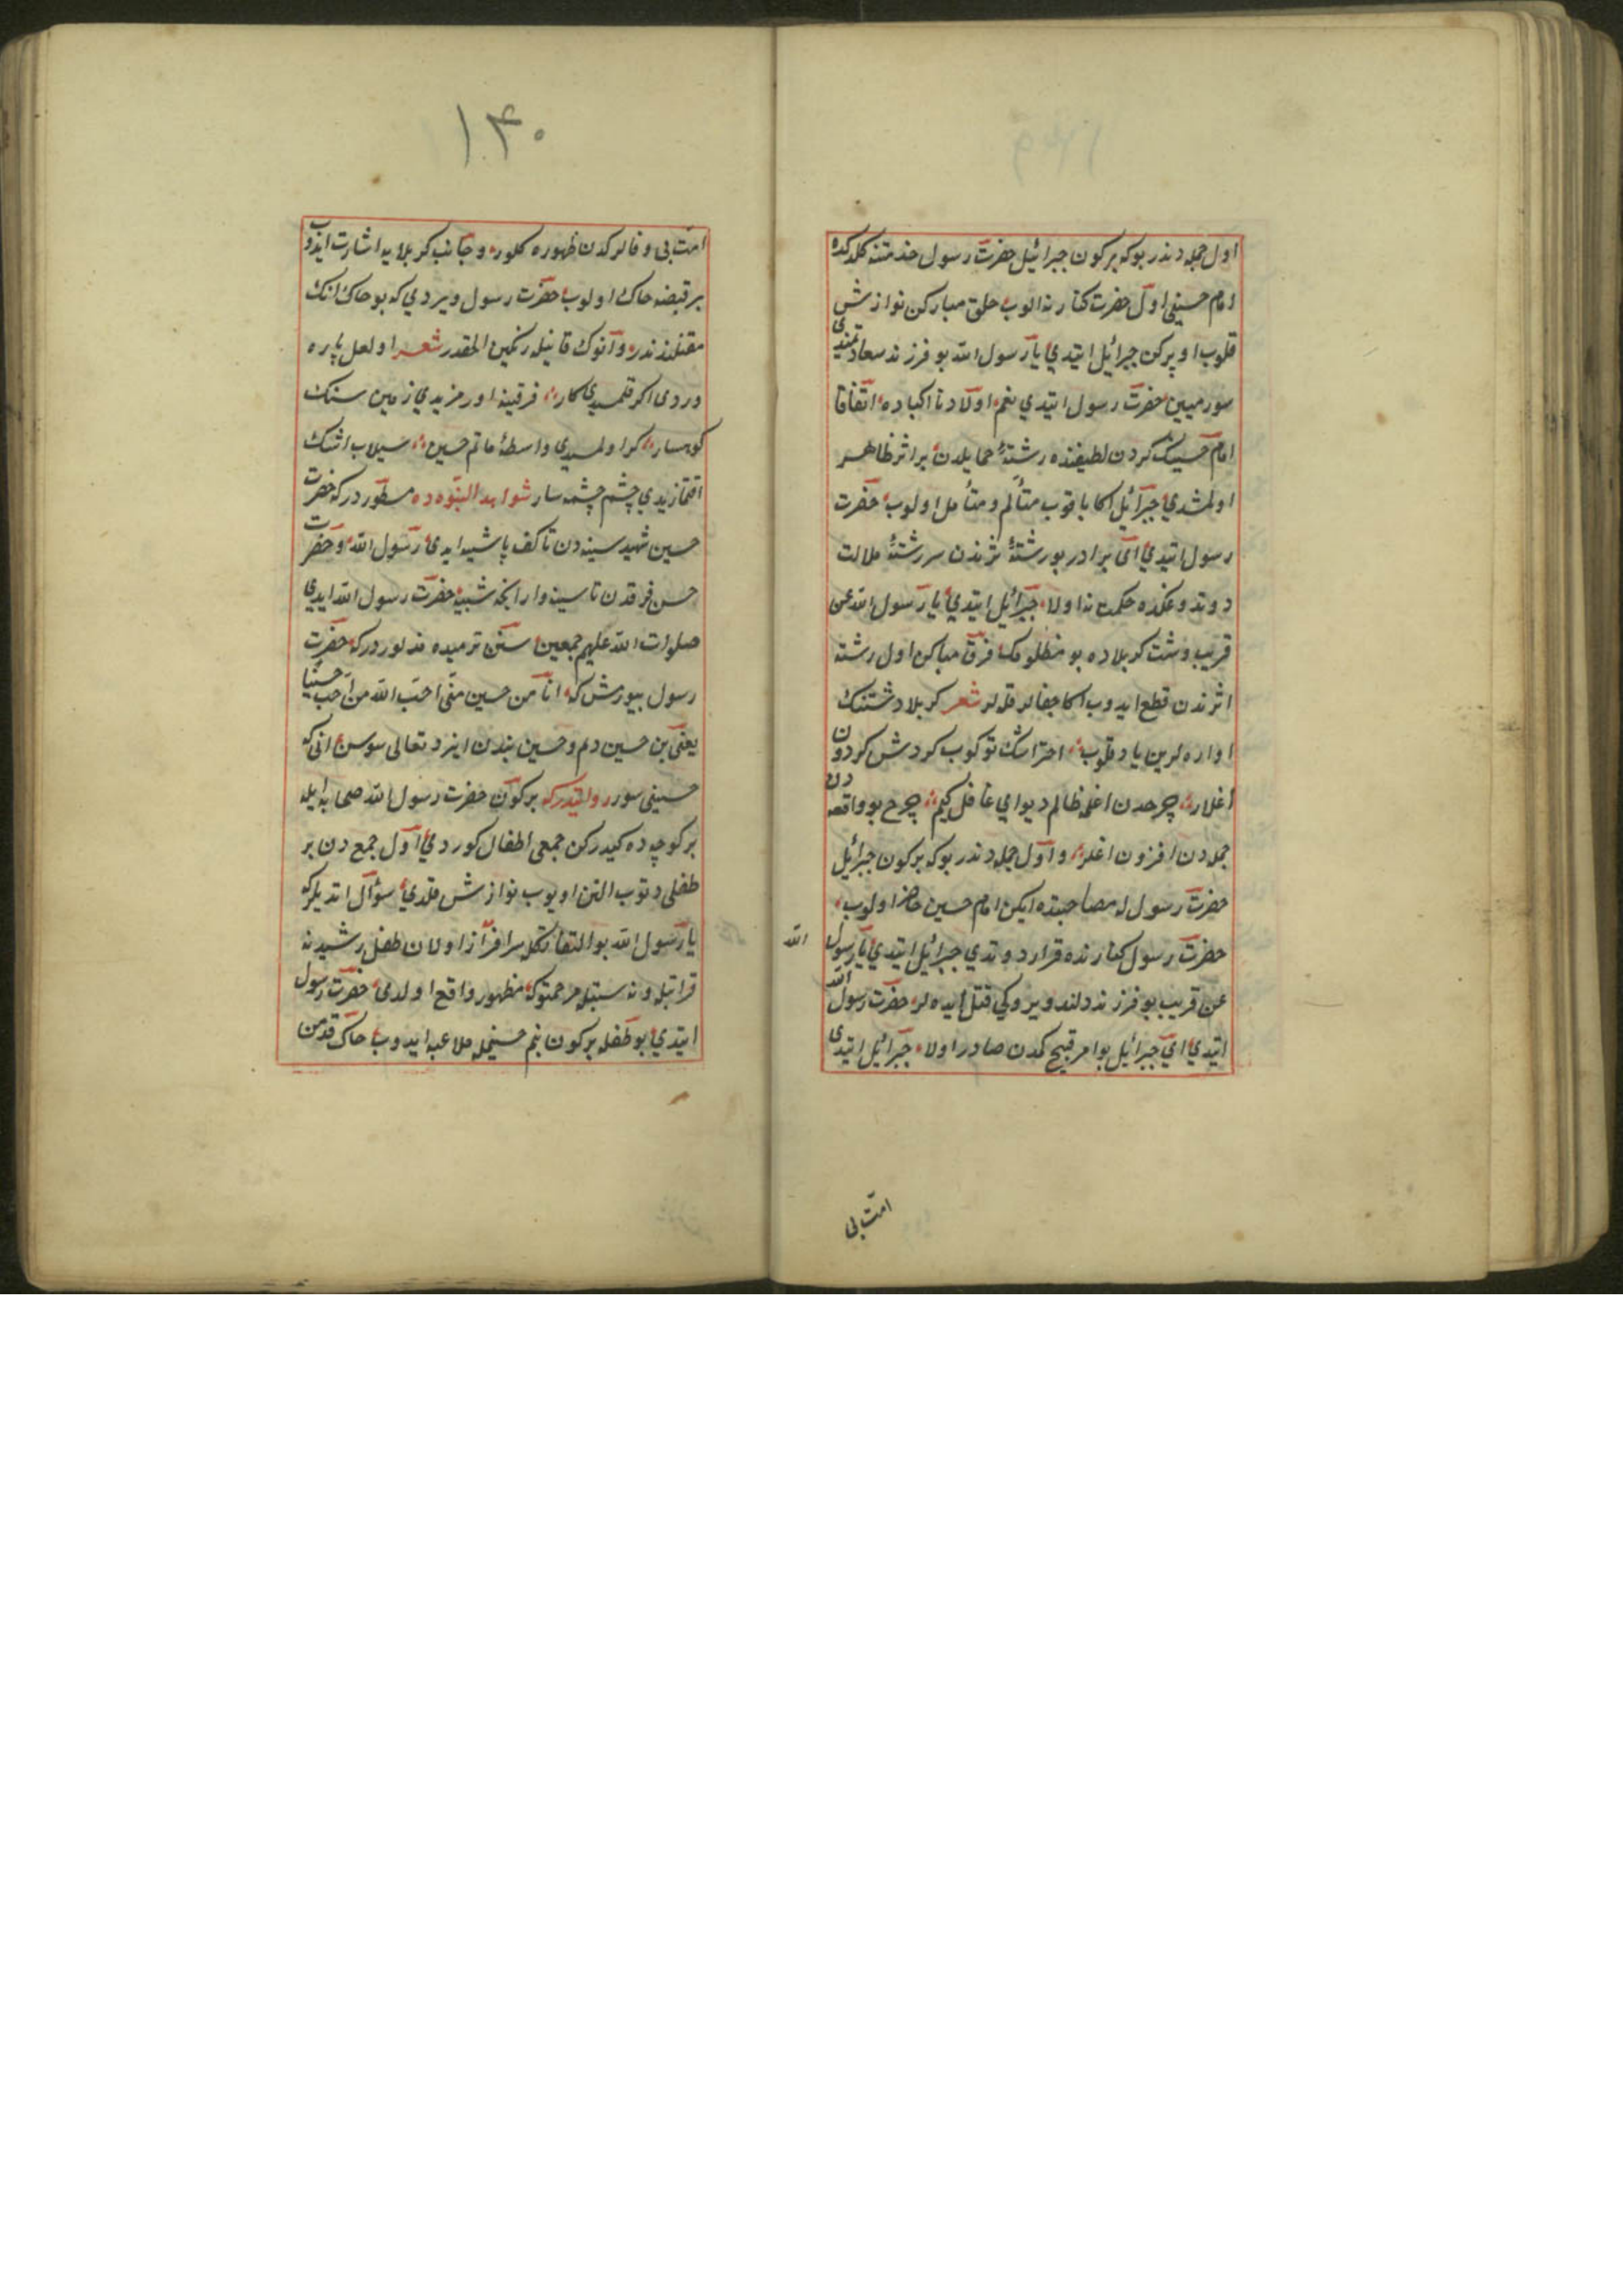 اول جمله دندر بوكه بر كون جبرائيل حضرت رسول خدمتنه كلدكده
امام حسينى اول حضرت كنارنه الوب حلق مباركن نوازش
قلوب اوپركن جبرائيل ايتدي يا رسول الله بو فرزند سعادتمندى
سورميسن حضرت رسول ايتدي بنم اولادنا اكبادنا اتفاقا
امام حسينك كردن لطيفنده رشتۀ حمايلدن بر اثر ظاهر
اولمشدي جبرائيل اكا باقوب متألم و متأمل اولوب حضرت
رسول ايتدي اى برادر بو رشتۀ اثرندن سررشتۀ ملالت
دوتدوغكده حكمت نه اولا جبرائيل ايتدي يا رسول الله عن
قريب دشت كربلاده بو مظلومك فرق مباركن اول رشته
اثرندن قطع ايدوب اكا جفالر قلورلر شعر كربلا دشتنك
اواره لرين ياد قلوب احتر اشك توكوب كردش كردون
اغلار چرخدن اغلمه ظالم ديو اى غافل كيم چرخ بو واقعه دن
جمله دن افزون اغلر و اول جمله دندر بوكه بر كون جبرائيل
حضرت رسول له مصاحبتده ايكن امام حسين حاضر اولوب
حضرت رسول كنارنده قرار دوتدي جبرائيل ايتدي يا رسول الله
عن قريب بو فرزند دلبندويروكي قتل ايده لر حضرت رسول الله
ايتدي اي جبرائيل بو امر قبيح كمدن صادر اولا جبرائيل ايتدى
امت بى
١٤٠
امت بى وفالركدن ظهوره كلور و جانب كربلايه اشارت ايدوب
بر قبضه خاك اولوب حضرت رسول ويردي كه بو خاك انك
مقتلندندر و آنوك قانيله رنكين المقدر شعر اولعل پاره
دردى اكر قلمسيدى كار فرقينه اورمزيدي زمين سنك
كوهسار كر اولمسيدى واسطۀ ماتم حسين سيلاب اشك
اقتمازيدي چشم چشمه سار شواهد النبوه ده مسطوردركه حضرت
حسين شهيد سينه دن تا كف پا شبيه ايدى رسول الله و حضرت
حسن فرقدن تا سينه وارانجه شبيه حضرت رسول الله ايدي
صلوات الله عليهم اجمعين سنن ترميده مذلوردركه حضرت
رسول بيورمش كه انا من حسين منى احب الله من احب حسينا
يعنى بن حسين دم و حسين بندن ايزد تعالى سوسن انى كه
حسينى سور روايتدركه بر كون حضرت رسول الله صحابه ايله
بر كوچه ده كيدركن جمعى اطفال كوردي اول جمع دن بر
طفلى دتوب النن اوپوب نوازش قلدي سؤال اتديلركه
يا رسول الله بو التفاتكله سرافراز اولان طفل رشيد نه
قرابتله و نه سبتله مرحمتوكه مظهور واقع اولدى حضرت رسول
ايتدي بو طفله بر كون بنم حسينمله ملاعبه ايدوب خاك قدمن